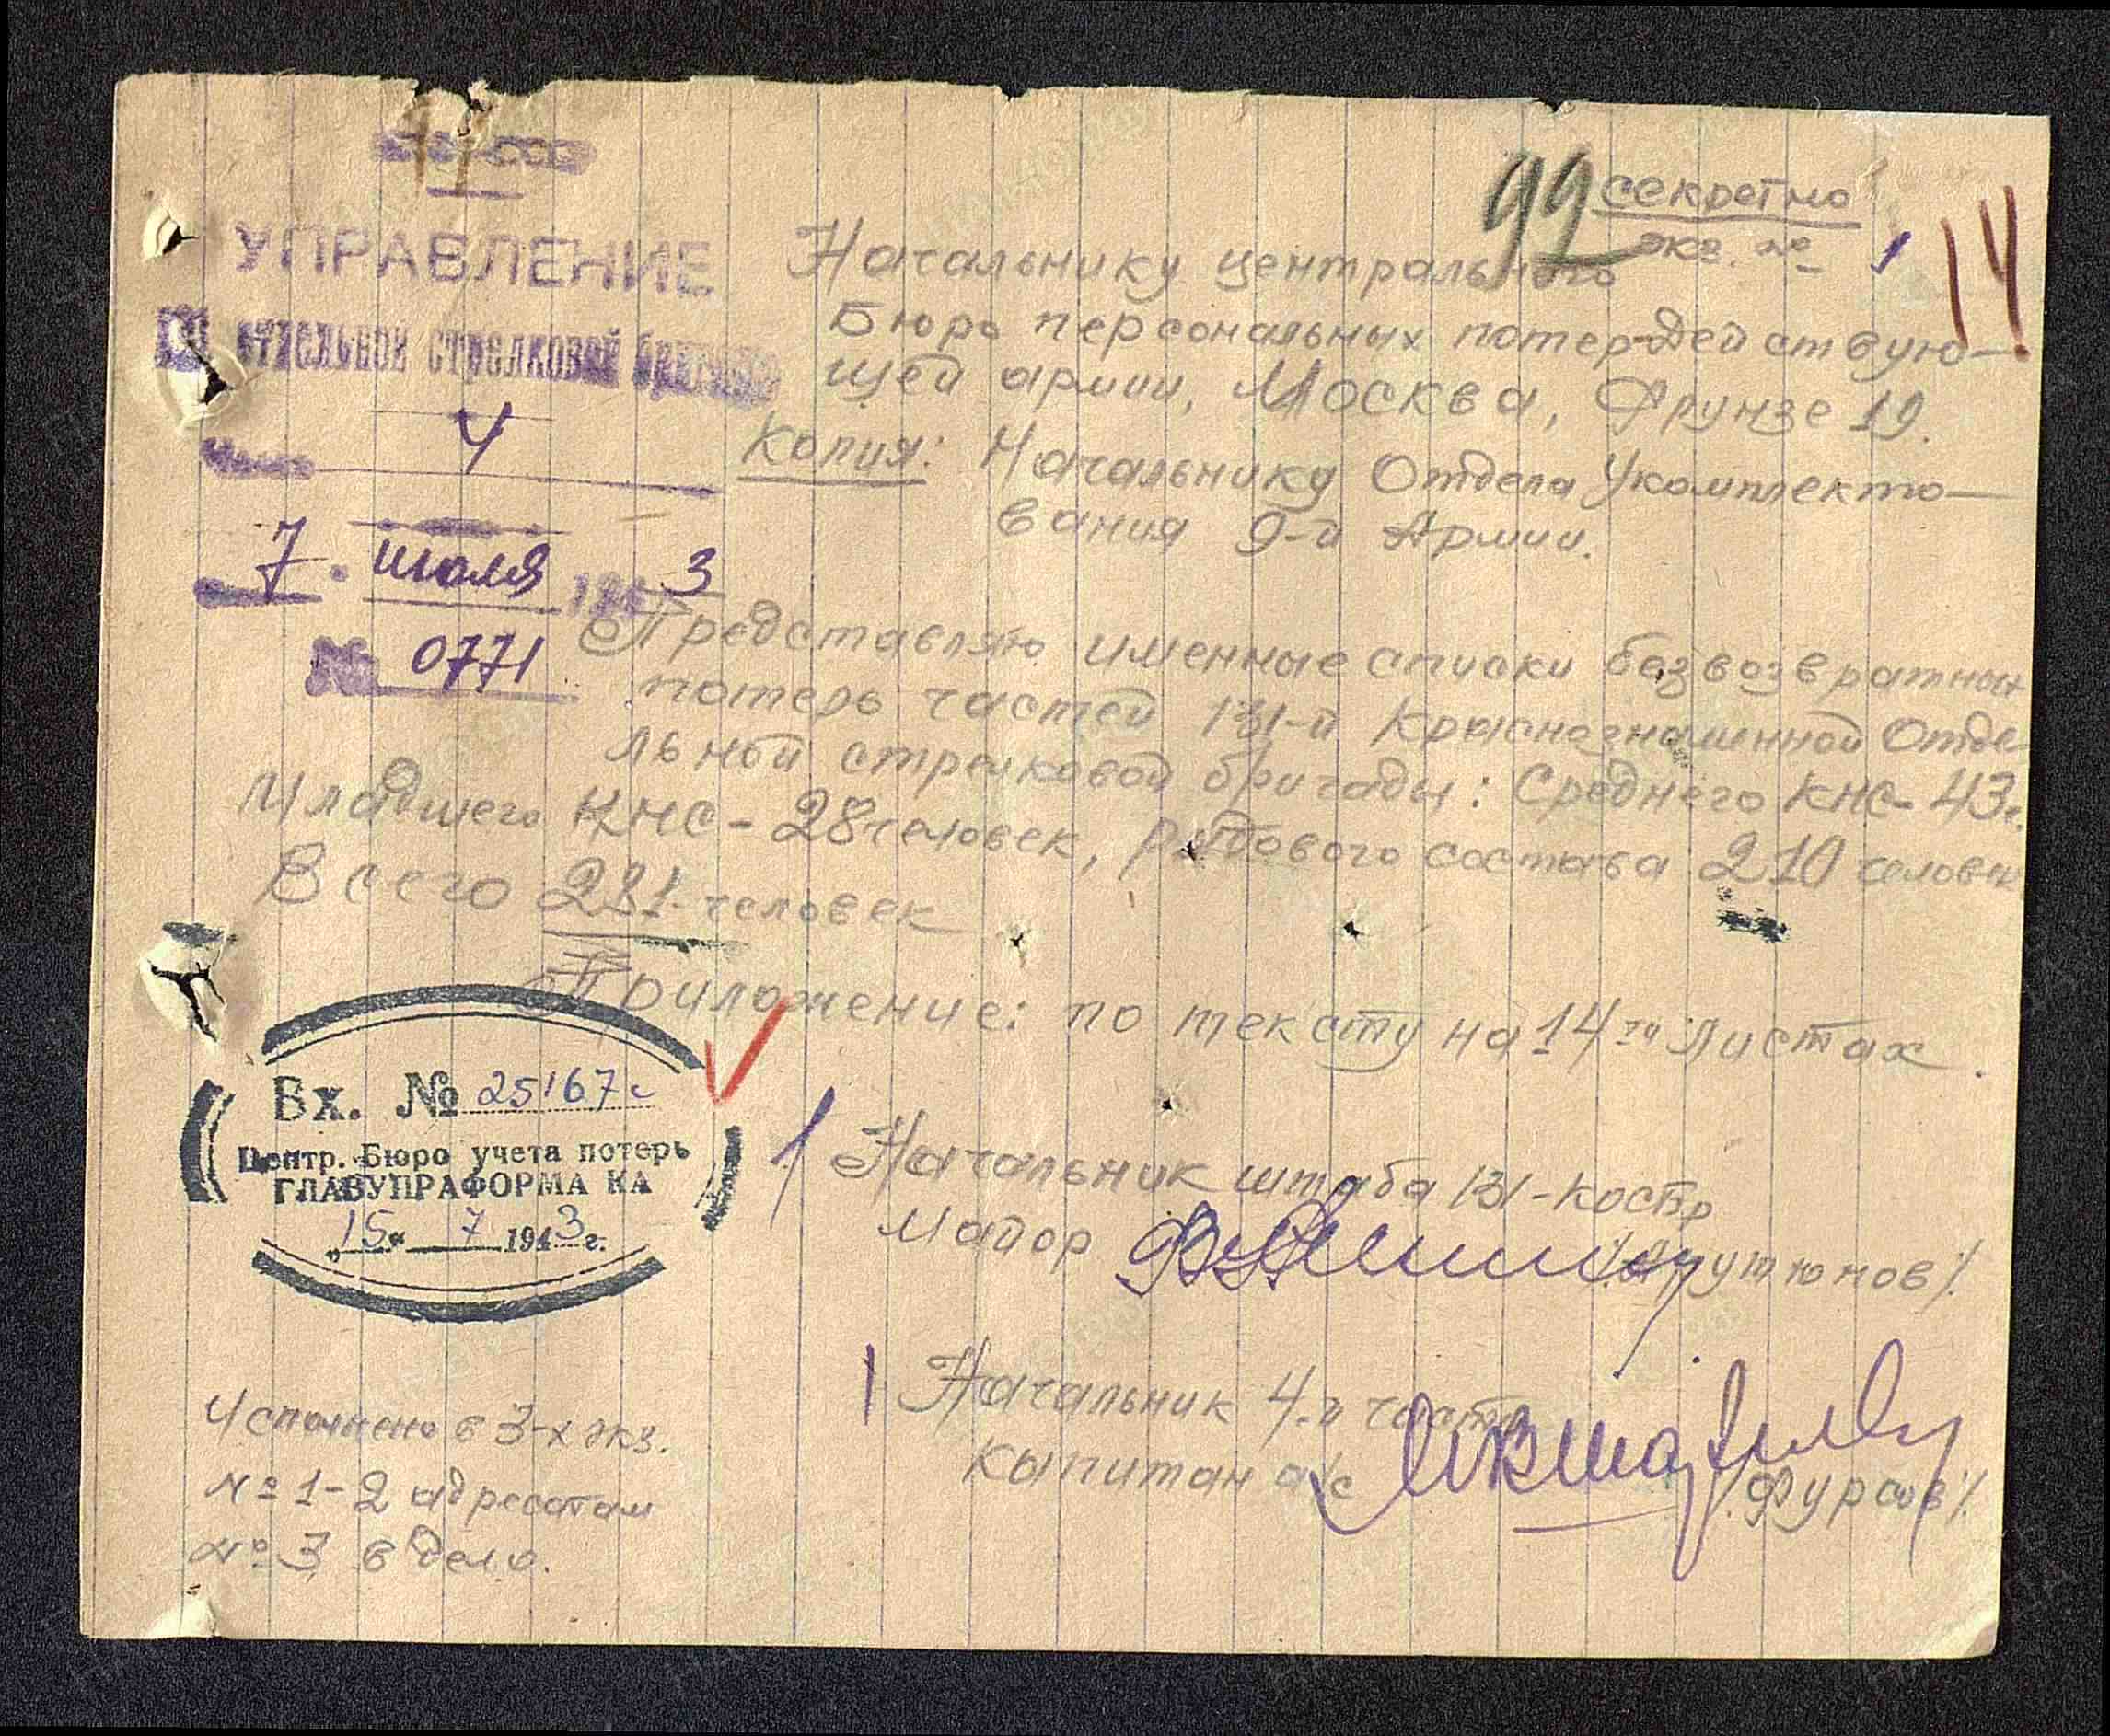 99
секретно
экз. № 1
14
УПРАВЛЕНИЕ
131 отдельной стрелковой бригады
4
7. июля 1943
№ 0771
Начальнику центрального
Бюро персональных потерь действую-
щей армии, Москва, Фрунзе 19.
Копия: Начальнику Отдела Укомплекто-
вания 9-й Армии.
Представляю именные списки безвозвратных
потерь частей 131-й Краснознаменной Отде
льной стрелковой бригады: Среднего КНС-43ч.
Младшего КНС-28 человек, рядового состава 210 человек
Всего 281 человек
Приложение: по тексту на 14ти листах.
Вх. № 25167с
Центр. Бюро учета потерь
ГЛАВУПРАФОРМА КА
„15“ 7 1943 г.
Начальник штаба 131-КОСТР
Майор /Арутюнов/.
Начальник 4-й части
капитан а/с /Фурсов/.
Исполнено в 3-х экз.
№ 1-2 адресатам
№ 3 в дело.